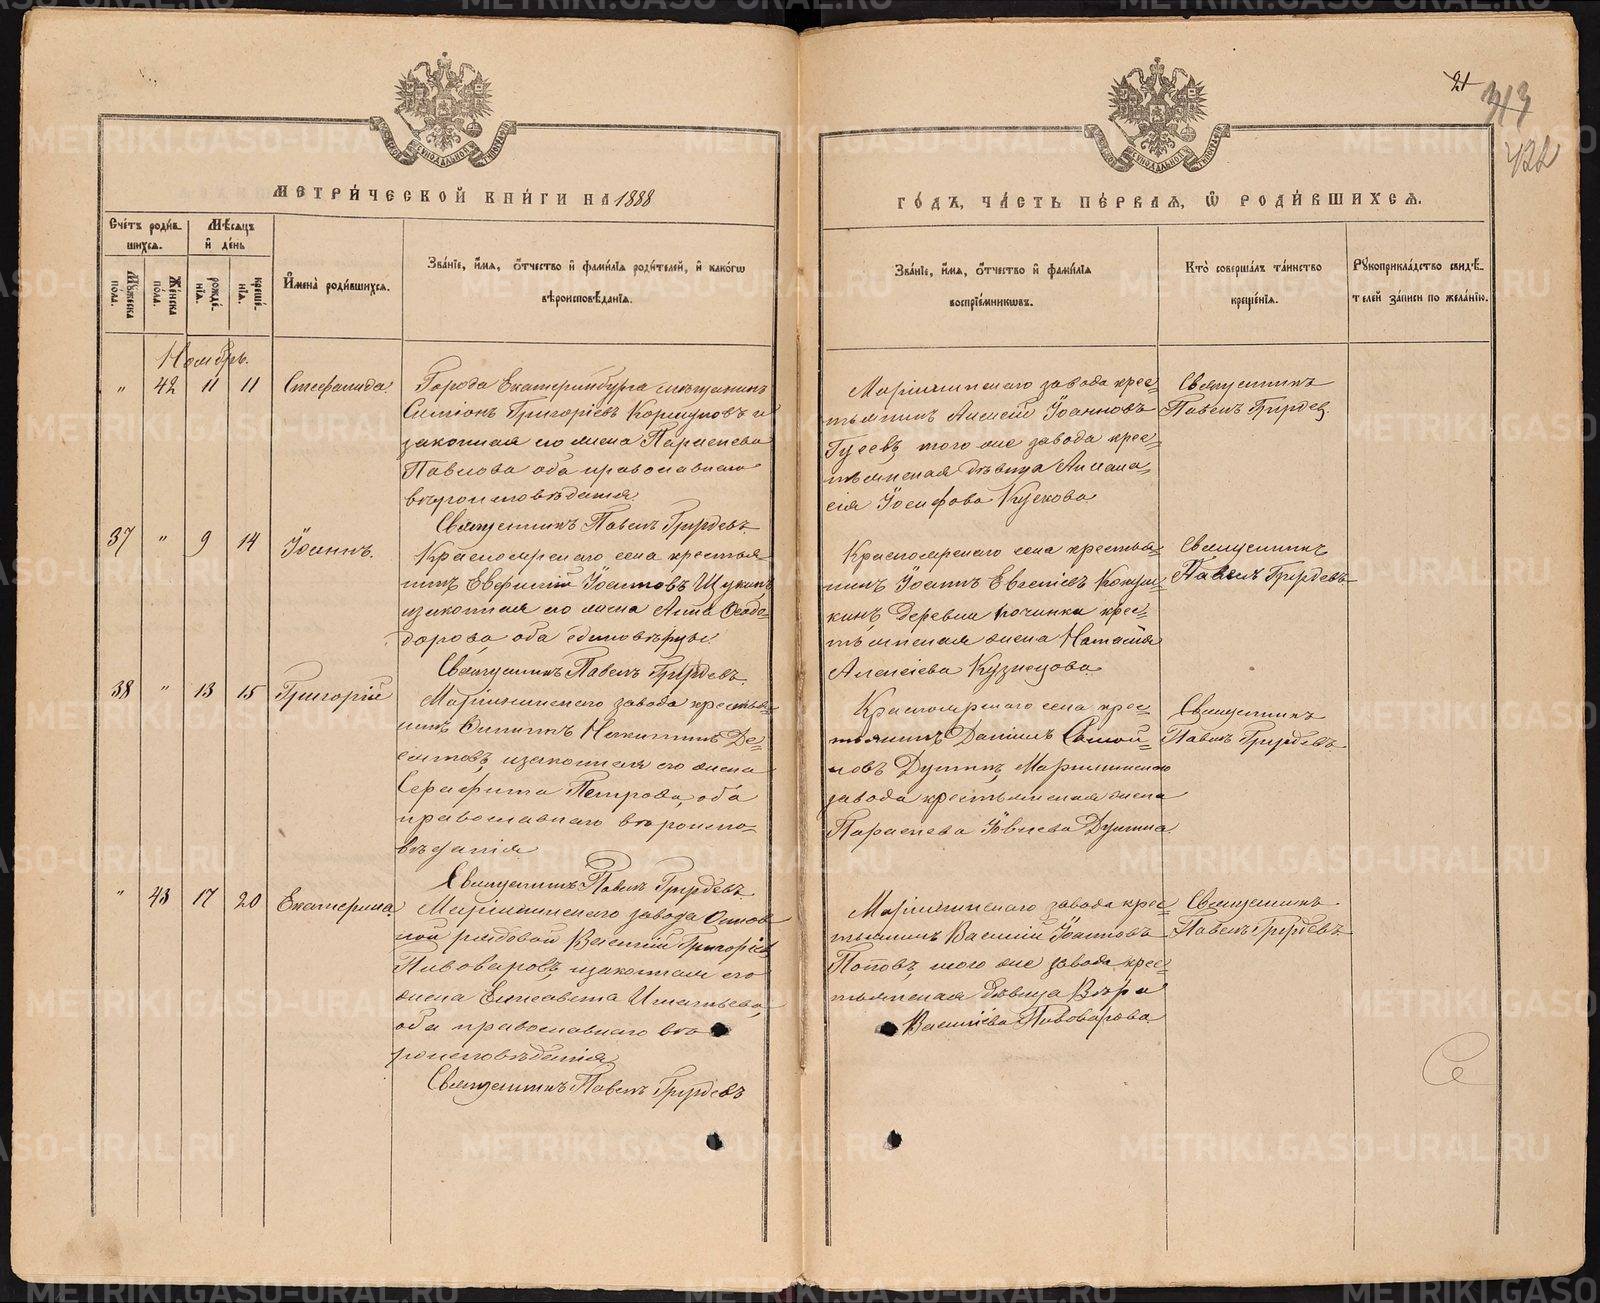 21
313
422
МЕТРИ́ЧЕСКОЙ КНИ́ГИ НА 1888
ГО́ДЪ, ЧА́СТЬ ПЕ́РВАЯ, Ѿ РОДИ́ВШИХСѦ.
Сче́тъ роди́в-
шихсѧ.
Мѣ́сѧцъ
и҆ де́нь
Мꙋ́жеска по́ла.
Же́нска по́ла.
рожде́-нїѧ.
креще́-нїѧ.
И҆мена̀ роди́вшихсѧ.
Зва́нїе, и҆́мѧ, ѻ҆́тчество и҆ фами́лїѧ роди́телей, и҆ како́гѡ
вѣроисповѣ́данїѧ.
Зва́нїе, и҆́мѧ, ѻ҆́тчество и҆ фами́лїѧ
воспрїе́мникѡвъ.
Кто̀ соверша́лъ та́инство
креще́нїѧ.
Рꙋкоприкла́дство свидѣ́-
телей за́писи по жела́нїю.
Ноябрь.
" 42 11 11 Стефанида.
Города Екатеринбурга мѣщанинъ
Симіонъ Григоріевъ Коршуновъ и
законная его жена Параскева
Павлова оба православнаго
вѣроисповѣданія
Священникъ Павелъ Гвоздевъ
Маріинскаго завода крес=
тьянинъ Алексѣй Іоанновъ
Гусевъ того же завода крес=
тьянская дѣвица
сія Іосифова Кускова
Священникъ
Павелъ
37 " 9 14 Іоаннъ.
Красноярскаго села крестья-
нинъ Евфимій Іоанновъ Щукинъ
и законная его жена Анна Ѳеодо-
дорова, оба единовѣрцы.
Священникъ Павелъ
Красноярскаго села крестья-
нинъ Іоаннъ Евсевіевъ Кокуш-
кинъ, Деревни Починка крес=
тьянская жена Наталія
Алексіева Кузнецова
Священникъ
Павелъ
38 " 13 15 Григорій
Маріинскаго завода крестья-
нинъ Филиппъ Никитинъ Де-
сятовъ, и законная его жена
Серафима Петрова, оба
православнаго вѣроиспо-
вѣданія
Священникъ Павелъ
Красноярскаго села крес-
тьянинъ Даніилъ Самой-
ловъ Дунинъ, Маріинскаго
завода крестьянская жена
Параскева Іовлева Дунина
Священникъ
Павелъ
" 43 17 20 Екатерина.
Маріинскаго завода
рядовой Василій Григоріевъ
Пивоваровъ, и законная его
жена Елисавета Игнатьева,
оба православнаго вѣ-
роисповѣданія
Священникъ Павелъ
Маріинскаго завода крес-
тьянинъ Василій Іоанновъ
Поповъ, того же завода крес-
тьянская дѣвица Вѣра
Василіева Пивоварова.
Священникъ
Павелъ